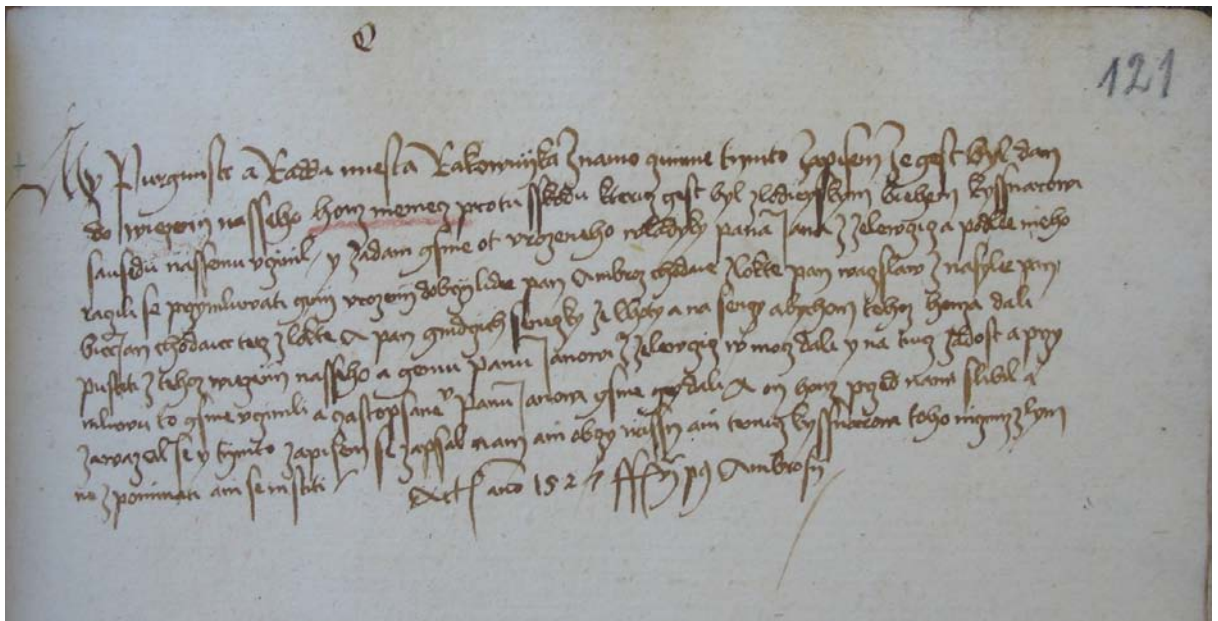 Q
121
My Purgmistr a Radda miesta Rakownyka znamo czinime tymto zapisem ze gest byl dan
do wiezenij nasseho honz niemecz protu sskodu kteruz gest byl zlodieyskym biehem kyssnarowi
sausedu nassemu vczinil y zadani gsme ot vrozeneho wladyky pana Jana z zelewcziz a podle nieho
raczili se przymluwati gynij vrozenij dobrzij lide pan Ambroz chodaur z lokte pan waczslaw z nasyle pan
Jan chodaur tez z lokte a pan gindrzich ze lhoty a na abychom tehoz honza dali
pustiti z tehoz wiezenij nasseho a gemu panu Janowi z zelewcziz w mocz dali y na tuz zadost a przy
mluwu to gsme vczinili a panu Janowi gsme gey dali A on honz przed nami slibil a
zawazal se y tymto zapisem se zapsal nam ani obczy nassij ani temuz kyssnarowi toho niczimz zlym
ne zpominati ani se mstiti Act anno 152 Ambrosij